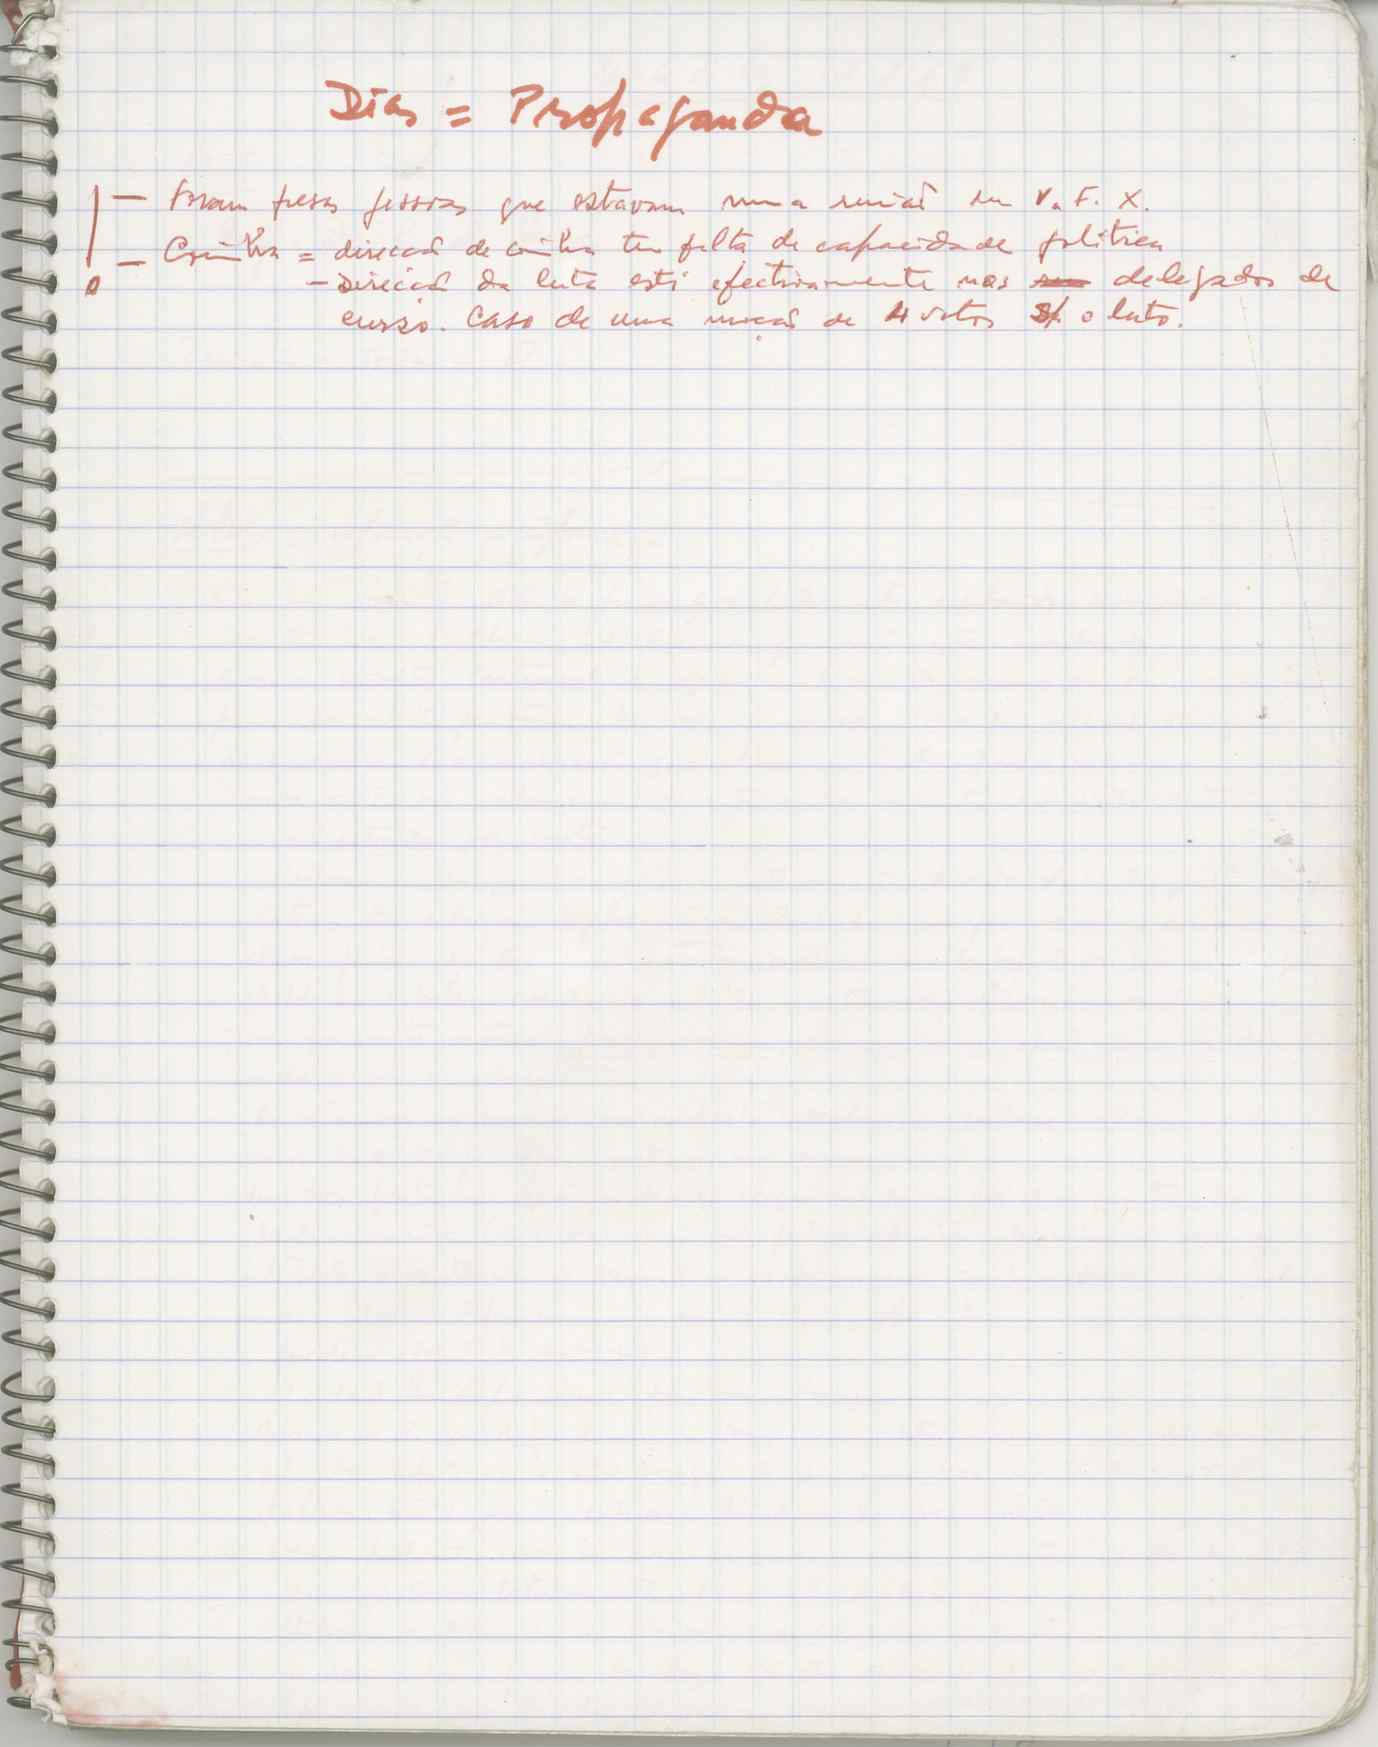 Dias = Propaganda
! — Foram presas pessoas que estavam numa reunião em V. F. X.
— Coimbra = direcção de coimbra tem falta de capacidade política
— Direcção da luta está efectivamente nos delegados de
curso. Caso de uma moção de 4 votos s/ o luto.